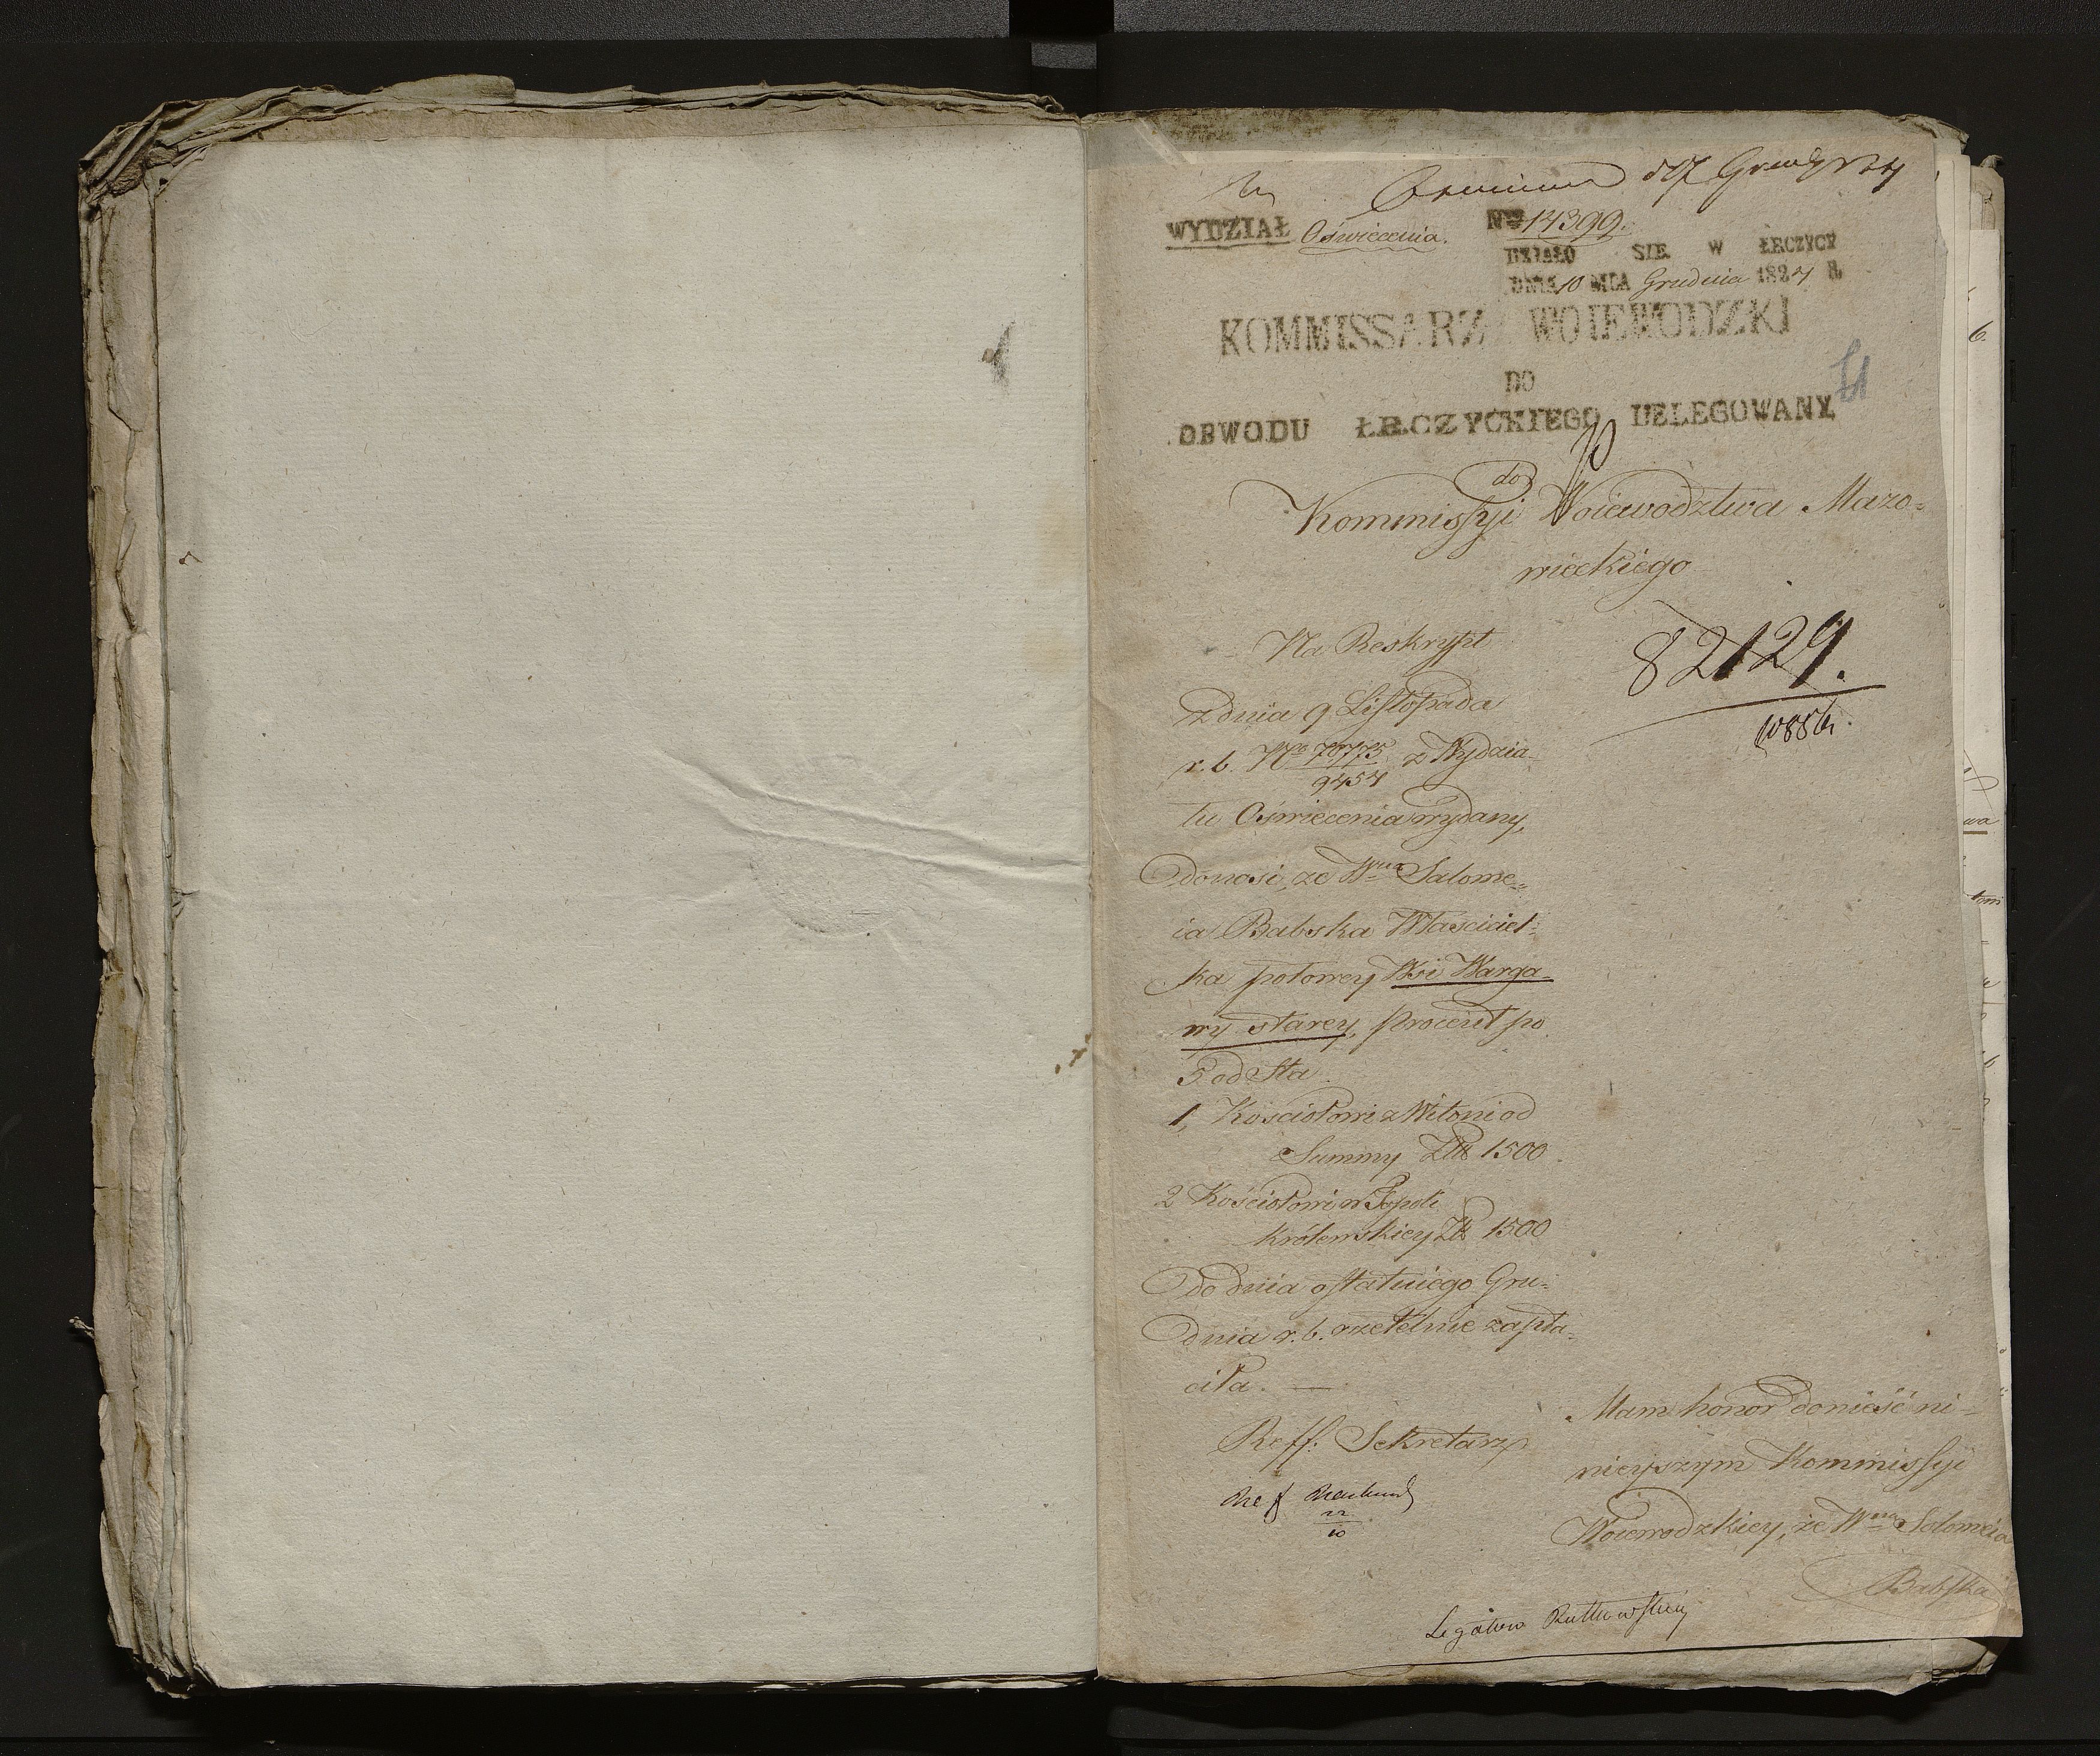 d 17 Grud 1824
WYDZIAŁ Oświecenia. Nro 14399.
DZIAŁO SIĘ W ŁĘCZYCY
DNIA 10 MCA Grudnia 1824 R.
KOMMISSARZ WOIEWODZKI
DO
OBWODU ŁĘCZYCKIEGO DELEGOWANY
do
Kommissyi Woiewodztwa Mazo-
wieckiego
82129.
10856.
Na Reskrypt
z dnia 9 Listopada
r. b. Nro 70775/9454 z Wydzia-
łu Oświecenia wydany,
donosi, że Wna Salome-
ia Babska Właściciel-
ka połowy Wsi Warga-
wy starey, procent po
5 od Sta.
1, Kościołowi z Witoni od
Summy Złp 1500.
2 Kościołowi w Topoli
Królewskiey Złp 1500
do dnia ostatniego Gru-
dnia r. b. rzetelnie zapła-
ciła. —
Reff. Sekretarz
Mam honor donieść ni-
nieyszym Kommissyi
Woiewodzkiey, że Wna Salomeia
Babska
Legatow Rutkowskiey